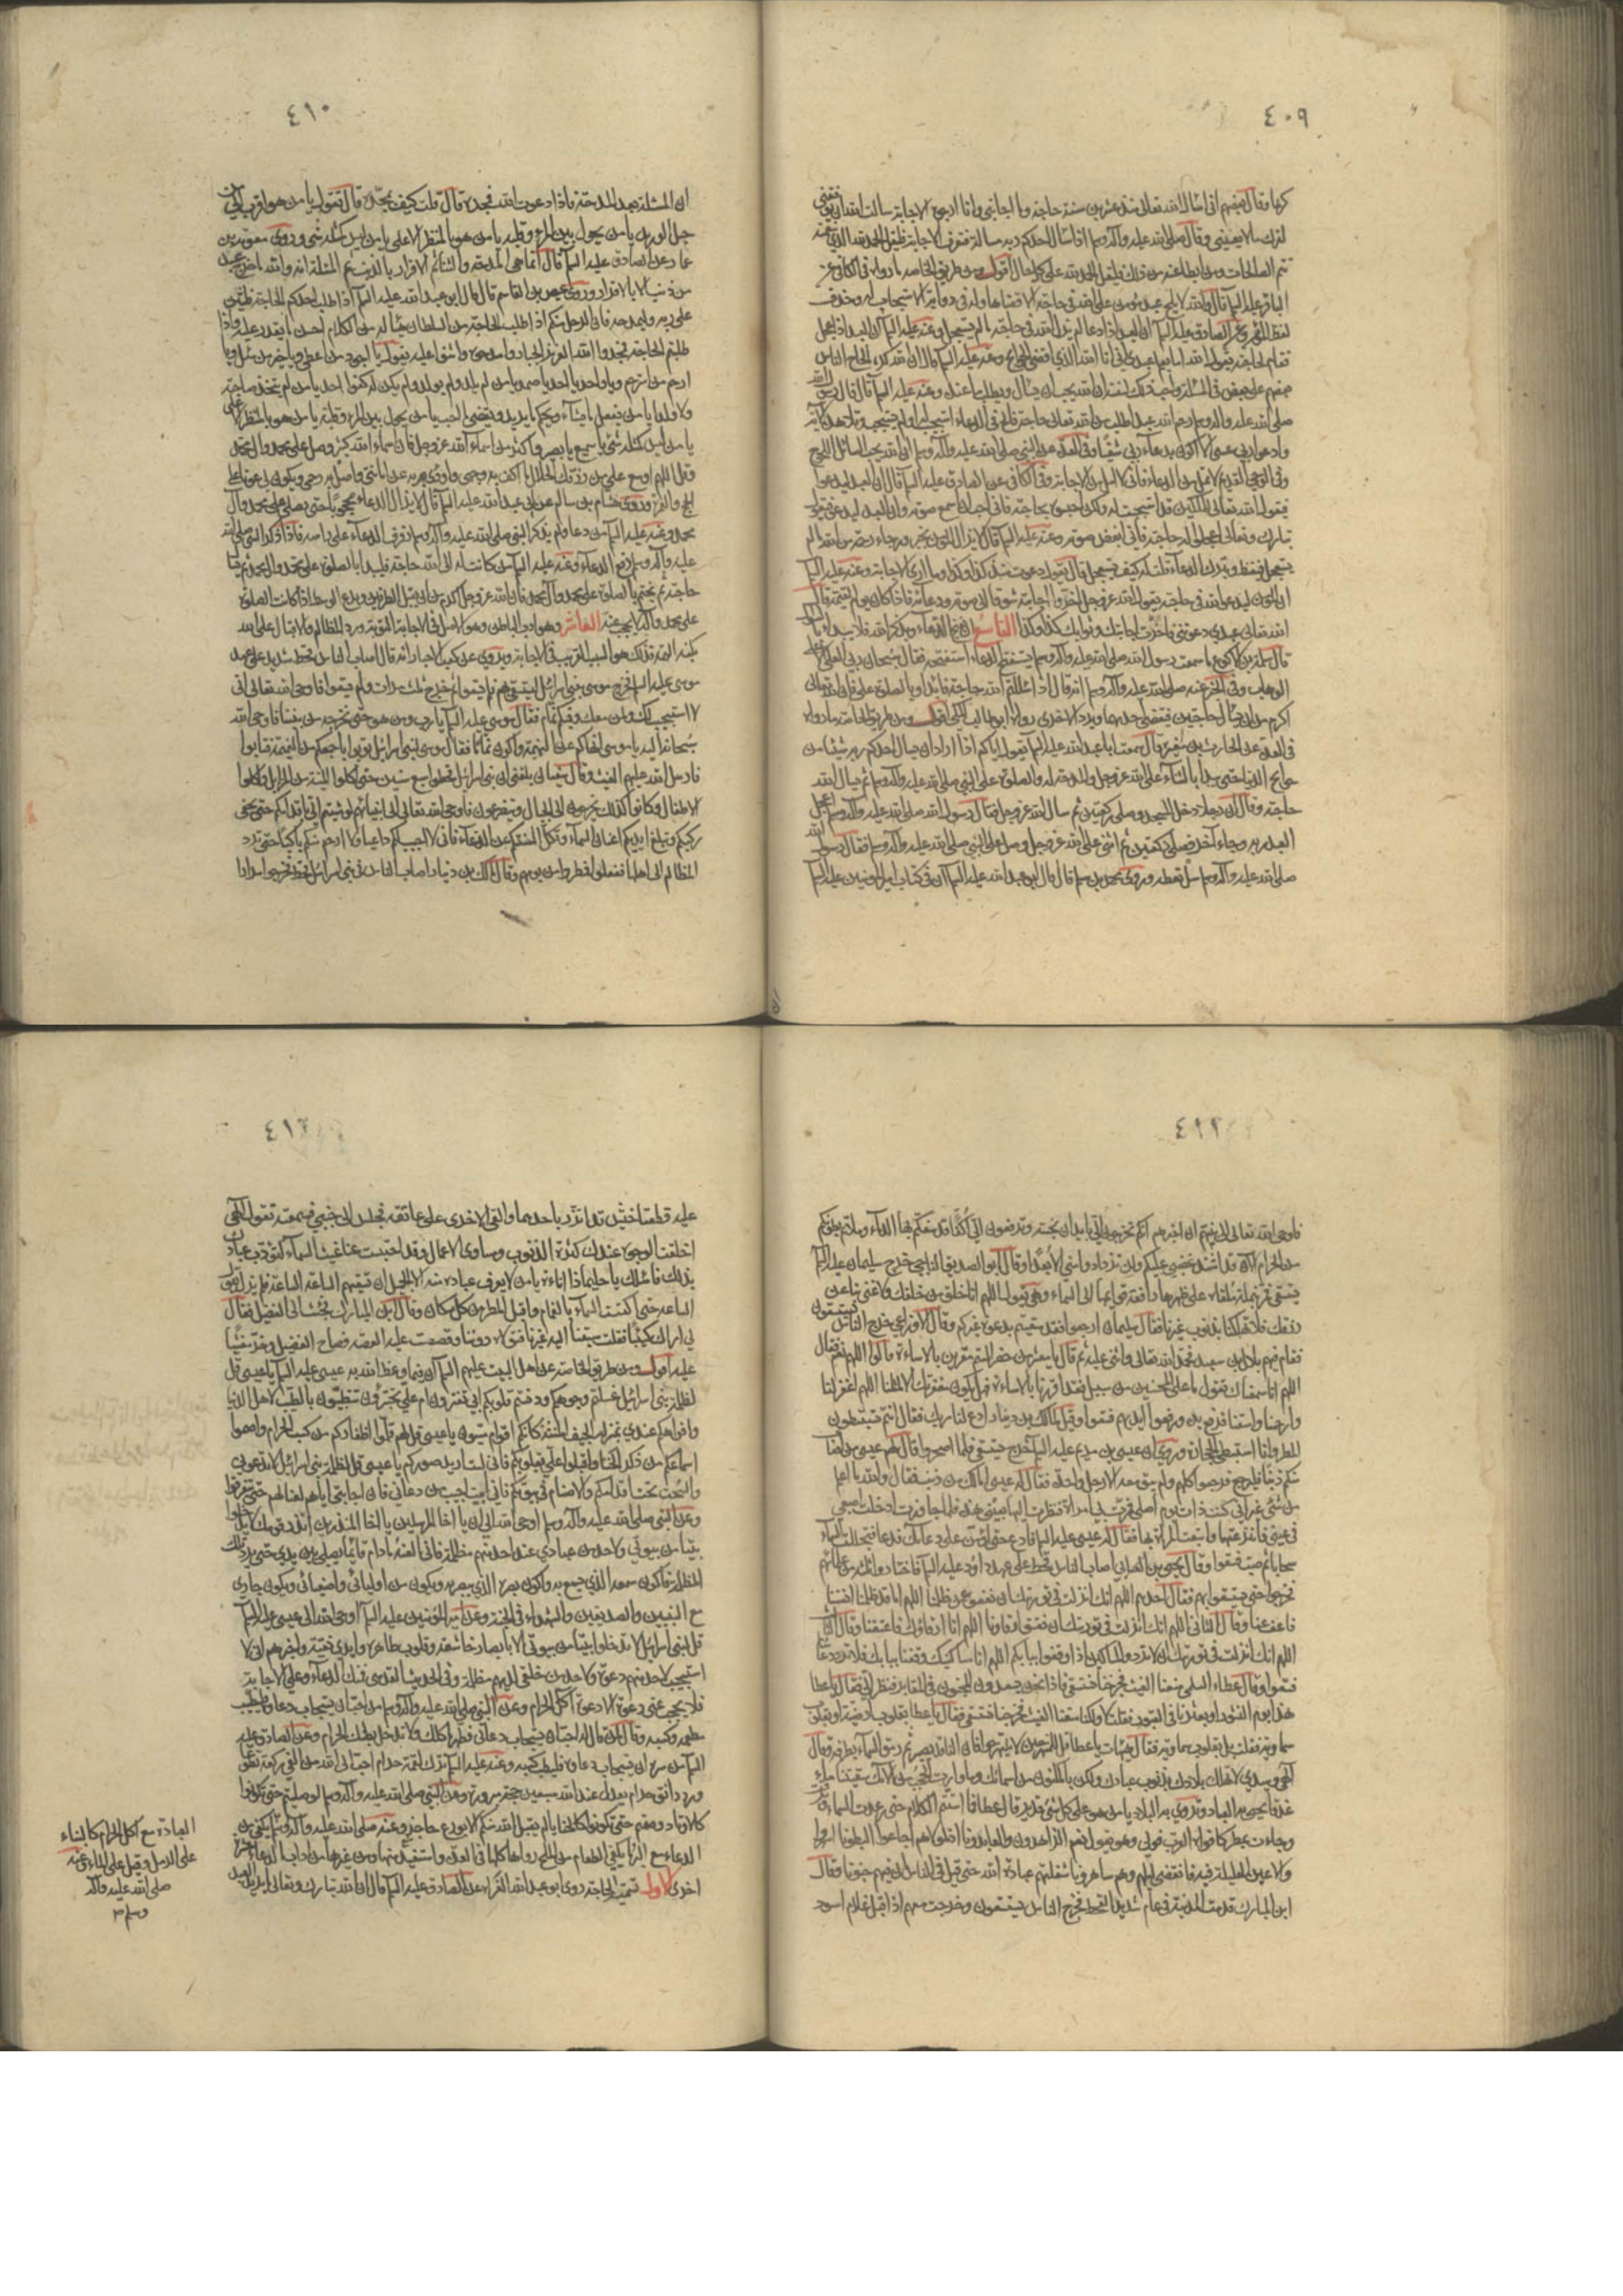 ٤٠٩
كرها وقال بعضهم اني اسال الله تعالى منذ عشرين سنة حاجة وما اجابني وانا ارجو الاجابة سالت الله ان يوفقني
لترك ما لا يعنيني وقال صلى الله عليه وآله وسلم اذا سال احدكم ربه مسالة فتعرف الاجابة فليقل الحمد لله الذي بنعمته
تتم الصالحات ومن ابطا عنه من ذلك فليقل الحمد لله على كل حال اقول ومن طريق الخاصة ما رواه في الكافي عن
الباقر عليه السلم قال والله لا يلح عبد مؤمن على الله في حاجته الا قضاها وله في دوايته الا استجاب له وحذف
لفظ المؤمن وعن الصادق عليه السلم ان العبد اذا دعا لم يزل الله في حاجته ما لم يستعجل وعنه عليه السلم ان العبد اذا عجل
فقام لحاجته يقول الله اما يعلم عبدي اني انا الله الذي اقضي الحوائج وعنه عليه السلم قال ان الله كره الحاح الناس
بعضهم على بعض في المسئلة واحب ذلك لنفسه ان الله يحب ان يسال ويطلب ما عنده وعنه عليه السلم قال قال رسول الله
صلى الله عليه وآله وسلم رحم الله عبدا طلب من الله تعالى حاجة فالح في الدعاء استجيب له او لم يستجب وتلا هذه الآية
وادعو ربي عسى الا اكون بدعاء ربي شقيا وفي العدة عن النبي صلى الله عليه وآله وسلم ان الله يحب السائل اللحوح
وفي الوحي القديم لا تمل من الدعاء فاني لا امل من الاجابة وفي الكافي عن الصادق عليه السلم قال ان العبد ليدعوا
فيقول الله تعالى للملكين قد استجبت له ولكن احبسوه بحاجته فاني احب ان اسمع صوته وان العبد ليدعو فيقول
تبارك وتعالى عجلوا له حاجته فاني ابغض صوته وعنه عليه السلم قال لا يزال المؤمن بخير ورجاء رحمة من الله ما لم
يستعجل فيقنط ويترك الدعاء قلت له كيف يستعجل قال يقول دعوت منذ كذا وكذا وما ارى الاجابة وعنه عليه السلم
ان المؤمن ليدعو الله في حاجته فيقول الله عز وجل اخروا اجابته شوقا الى صوته ودعائه فاذا كان يوم القيمة قال
الله تعالى عبدي دعوتني فاخرت اجابتك وثوابك كذا وكذا التاسع ان يفتتح الدعاء بذكر الله فلا يبدا بالسؤال
قال سلمة بن الاكوع ما سمعت رسول الله صلى الله عليه وآله وسلم يستفتح الدعاء الا استفتحه فقال سبحان ربي العلي الاعلى
الوهاب وفي الخبر عنه صلى الله عليه وآله وسلم انه قال اذا سالتم الله حاجة فابداوا بالصلوة علي فان الله تعالى
اكرم من ان يسال حاجتين فيقضي احديهما ويرد الاخرى رواه ابو طالب المكي اقول ومن طريق الخاصة ما رواه
في العدة عن الحارث بن المغيرة قال سمعت ابا عبد الله عليه السلم يقول اياكم اذا اراد ان يسال احدكم ربه شيئا من
حوايج الدنيا حتى يبدا بالثناء على الله عز وجل والمدحة له والصلوة على النبي صلى الله عليه وآله وسلم ثم يسال الله
حاجته وقال ان رجلا دخل المسجد وصلى ركعتين ثم سال الله عز وجل فقال رسول الله صلى الله عليه وآله وسلم اعجل
العبد ربه وجاء آخر فصلى ركعتين ثم اثنى على الله عز وجل وصلى على النبي صلى الله عليه وآله وسلم فقال رسول الله
صلى الله عليه وآله وسلم سل تعطه وروى محمد بن مسلم قال قال ابو عبد الله عليه السلم ان في كتاب امير المؤمنين عليه السلم
٤١٠
ان المسئلة بعد المدحة فاذا دعوت الله فمجده قال قلت كيف نمجده قال تقول يا من هو اقرب الي من
حبل الوريد يا من يحول بين المرء وقلبه يا من هو بالمنظر الاعلى يا من ليس كمثله شيء وروى معوية بن
عمار عن الصادق عليه السلم قال انما هي المدحة ثم الثناء ثم الاقرار بالذنب ثم المسئلة انه والله ما خرج عبد
من ذنب الا بالاقرار وروى عيص بن القاسم قال قال ابو عبد الله عليه السلم اذا طلب احدكم الحاجة فليثن
على ربه وليمدحه فان الرجل منكم اذا طلب الحاجة من السلطان هيا له من الكلام احسن ما يقدر عليه فاذا
طلبتم الحاجة فمجدوا الله العزيز الجبار وامدحوه واثنوا عليه يقول يا اجود من اعطى ويا خير من سئل ويا
ارحم من استرحم ويا واحد يا احد يا صمد يا من لم يلد ولم يولد ولم يكن له كفوا احد يا من لم يتخذ صاحبة
ولا ولدا يا من يفعل ما يشاء ويحكم ما يريد ويقضي ما احب يا من يحول بين المرء وقلبه يا من هو بالمنظر الاعلى
يا من ليس كمثله شيء يا سميع يا بصير واكثر من اسماء الله عز وجل فان اسماء الله كثيرة وصل على محمد وآل محمد
وقل اللهم اوسع علي من رزقك الحلال ما اكف به وجهي واؤدي به عن امانتي واصل به رحمي ويكون لي عونا على
الحج والعمرة وروى هشام بن سالم عن ابي عبد الله عليه السلم قال لا يزال الدعاء محجوبا حتى يصلى على محمد وآل
محمد وعنه عليه السلم من دعا ولم يذكر النبي صلى الله عليه وآله وسلم رفرف الدعاء على راسه فاذا ذكر النبي صلى الله
عليه وآله وسلم رفع الدعاء وعنه عليه السلم من كانت له الى الله حاجة فليبدا بالصلوة على محمد وآل محمد ثم يسال
حاجته ثم يختم بالصلوة على محمد وآل محمد فان الله عز وجل اكرم من ان يقبل الطرفين ويدع الوسط اذا كانت الصلوة
على محمد وآله لا تحجب عنه العاشر وهو ادب الباطن وهو الاصل في الاجابة التوبة ورد المظالم والاقبال على الله
بكنه الهمة فذلك هو السبب القريب في الاجابة ويروى عن كعب الاحبار انه قال اصاب الناس قحط شديد على عهد
موسى عليه السلم فخرج موسى ببني اسرائيل يستسقي بهم فلم يسقوا ثم خرج ثلث مرات ولم يسقوا فاوحى الله تعالى اني
لا استجيب لك ولمن معك وفيكم نمام فقال موسى عليه السلم يا رب ومن هو حتى نخرجه من بيننا فاوحى الله
سبحانه اليه يا موسى انهاكم عن النميمة واكون نماما فقال موسى لبني اسرائيل توبوا باجمعكم من النميمة فتابوا
فارسل الله عليهم الغيث وقال سفيان بلغني ان بني اسرائيل قحطوا سبع سنين حتى اكلوا الميتة من المزابل واكلوا
الاطفال وكانوا كذلك يخرجون الى الجبال ويتضرعون فاوحى الله تعالى الى انبيائهم لو مشيتم الي باقدامكم حتى تحفى
ركبكم وتبلغ ايديكم اعنان السماء وتكل السنتكم عن الدعاء فاني لا اجيب لكم داعيا ولا ارحم منكم باكيا حتى تردوا
المظالم الى اهلها ففعلوا فمطروا من يومهم وقال مالك بن دينار اصاب الناس في بني اسرائيل قحط فخرجوا مرارا
٤١١
فاوحى الله تعالى الى نبيهم ان اخبرهم انكم تخرجون الي بابدان نجسة وترفعون الي اكفا قد سفكتم بها الدماء وملاتم بطونكم
من الحرام الان قد اشتد غضبي عليكم ولن تزدادوا مني الا بعدا وقال ابو الصديق الناجي خرج سليمان عليه السلم
يستسقي فمر بنملة ملقاة على ظهرها رافعة قوايمها الى السماء وهي تقول اللهم انا خلق من خلقك ولا غنى بنا عن
رزقك فلا تهلكنا بذنوب غيرنا فقال سليمان ارجعوا فقد سقيتم بدعوة غيركم وقال الاوزاعي خرج الناس يستسقون
فقام فيهم بلال بن سعد فحمد الله تعالى واثنى عليه ثم قال يا معشر من حضر الستم مقرين بالاساءة قالوا اللهم نعم فقال
اللهم انا سمعناك تقول ما على المحسنين من سبيل فقد اقررنا بالاساءة فهل يكون مغفرتك الا لمثلنا اللهم اغفر لنا
وارحمنا واسقنا فرفع يده ورفعوا ايديهم فسقوا وقيل لمالك بن دينار ادع لنا ربك فقال انتم تستبطئون
المطر وانا استبطئ الحجارة وروي ان عيسى بن مريم عليه السلم خرج يستسقي فلما اصحروا قال لهم عيسى من اصاب
منكم ذنبا فليرجع فرجعوا كلهم ولم يبق معه الا رجل واحد فقال له عيسى اما لك من ذنب فقال والله ما اعلم
من شيء غير اني كنت ذات يوم اصلي فمرت بي امراة فنظرت اليها بعيني هذه فلما جاوزت ادخلت اصبعي
في عيني فانتزعتها واتبعت المراة بها فقال له عيسى عليه السلم فادع حتى اؤمن على دعائك فدعا فتجللت السماء
سحابا ثم صبت فسقوا وقال يحيى بن الغساني اصاب الناس قحط على عهد داود عليه السلم فاختاروا ثلثة من علمائهم
فخرجوا حتى يستسقوا بهم فقال احدهم اللهم انك انزلت في توريتك ان نعفو عمن ظلمنا اللهم انا قد ظلمنا انفسنا
فاعف عنا وقال الثاني اللهم انك انزلت في توريتك ان نعتق ارقاءنا اللهم انا ارقاؤك فاعتقنا وقال الثالث
اللهم انك انزلت في توريتك ان لا نرد المساكين اذا وقفوا ببابكم اللهم انا مساكينك وقفنا ببابك فلا ترد دعاءنا
فسقوا وقال عطاء السلمي منعنا الغيث فخرجنا نستسقي فاذا نحن بسعدون المجنون في المقابر فنظر الي فقال يا عطا
هذا يوم النشور او بعثر ما في القبور فقلت لا ولكنا منعنا الغيث فخرجنا نستسقي فقال يا عطا بقلوب ارضية او بقلوب
سماوية فقلت بل بقلوب سماوية فقال هيهات يا عطا قل للمتبهرجين لا يتبهرجوا فان الناقد بصير ثم رمق السماء بطرفه وقال
الهي وسيدي لا تهلك بلادك بذنوب عبادك ولكن بالمكنون من اسمائك وما وارت الحجب من الآئك سقيتنا ماء
غدقا تحيي به العباد وتروي به البلاد يا من هو على كل شيء قدير قال عطا فما استتم الكلام حتى رعدت السماء وبرقت
وجاءت بمطر كافواه القرب فولى وهو يقول نعم الزاهدون والعابدونا اذ لمولاهم اجاعوا البطونا اسهروا
الاعين العليلة فيه فانقضى ليلهم وهم ساهرونا شغلتهم عبادة الله حتى قيل في الناس ان فيهم جنونا وقال
ابن المبارك قدمت المدينة في عام شديد القحط فخرج الناس يستسقون وخرجت معهم اذ اقبل غلام اسود
٤١٢
عليه قطعتا خيش قد اتزر باحدهما والقى الاخرى على عاتقه فجلس الى جنبي فسمعته يقول الهي
اخلقت الوجوه عندك كثرة الذنوب ومساوي الاعمال وقد احتبست عنا غيث السماء لتؤدب عبادك
بذلك فاسئلك يا حليما ذا اناءة يا من لا يعرف عباده منه الا الجميل ان تسقيهم الساعة الساعة فلم يزل يقول
الساعة حتى اكتست السماء بالغمام واقبل المطر من كل مكان وقال ابن المبارك فجئت الى الفضيل فقال
لي اراك كئيبا فقلت سبقنا اليه غيرنا فتولاه دوننا وقصصت عليه القصة فصاح الفضيل وخر مغشيا
عليه اقول ومن طريق الخاصة عن اهل البيت عليهم السلم ان فيما وعظ الله به عيسى عليه السلم يا عيسى قل
لظلمة بني اسرائيل غسلتم وجوهكم ودنستم قلوبكم ابي تغترون ام علي تجترؤن تتطيبون بالطيب لاهل الدنيا
واجوافكم عندي بمنزلة الجيف المنتنة كانكم اقوام ميتون يا عيسى قل لهم قلموا اظفاركم من كسب الحرام واصموا
اسماعكم من ذكر الخنا واقبلوا علي بقلوبكم فاني لست اريد صوركم يا عيسى قل لظلمة بني اسرائيل لا تدعوني
والسحت تحت اقدامكم والاصنام في بيوتكم فاني آليت ان اجيب من دعاني فان اجابتي اياهم لعنا لهم حتى يتفرقوا
وعن النبي صلى الله عليه وآله وسلم اوحى الله الي ان يا اخا المرسلين يا اخا المنذرين انذر قومك لا يدخلوا
بيتا من بيوتي ولاحد من عبادي عند احد منهم مظلمة فاني العنه ما دام قائما يصلي بين يدي حتى يرد تلك
المظلمة فاكون سمعه الذي يسمع به واكون بصره الذي يبصر به ويكون من اوليائي واصفيائي ويكون جاري
مع النبيين والصديقين والشهداء في الجنة وعن امير المؤمنين عليه السلم اوحى الله الى عيسى عليه السلم
قل لبني اسرائيل لا تدخلوا بيتا من بيوتي الا بابصار خاشعة وقلوب طاهرة وايدي نقية واخبرهم اني لا
استجيب لاحد منهم دعوة ولاحد من خلقي لديهم مظلمة وفي الحديث القدسي فمنك الدعاء وعلي الاجابة
فلا يحجب عني دعوة الا دعوة آكل الحرام وعن النبي صلى الله عليه وآله وسلم من احب ان يستجاب دعاؤه فليطيب
مطعمه وكسبه وقال لمن قال له احب ان يستجاب دعائي طهر ماكلك ولا تدخل بطنك الحرام وعن الصادق عليه
السلم من سره ان يستجاب دعاؤه فليطب كسبه وعنه عليه السلم ترك لقمة حرام احب الى الله من الفي ركعة تطوعا
ورد دانق حرام يعدل عند الله سبعين حجة مبرورة وعن النبي صلى الله عليه وآله وسلم لو صليتم حتى تكونوا
كالاوتاد وصمتم حتى تكونوا كالحنايا لم يقبل الله منكم الا بورع حاجز وعنه صلى الله عليه وآله وسلم يكفي من
الدعاء مع البر ما يكفي الطعام من الملح رواها كلها في العدة واستفيد منها ومن غيرها من اداب الدعاء عشرة
اخرى الاول تسمية الحاجة روى ابو عبد الله الفراء عن الصادق عليه السلم قال ان الله تبارك وتعالى يعلم ما يريد العبد
العبادة مع اكل الحرام كالبناء
على الرمل وقيل على الماء وعنه
صلى الله عليه وآله
وسلم ٣